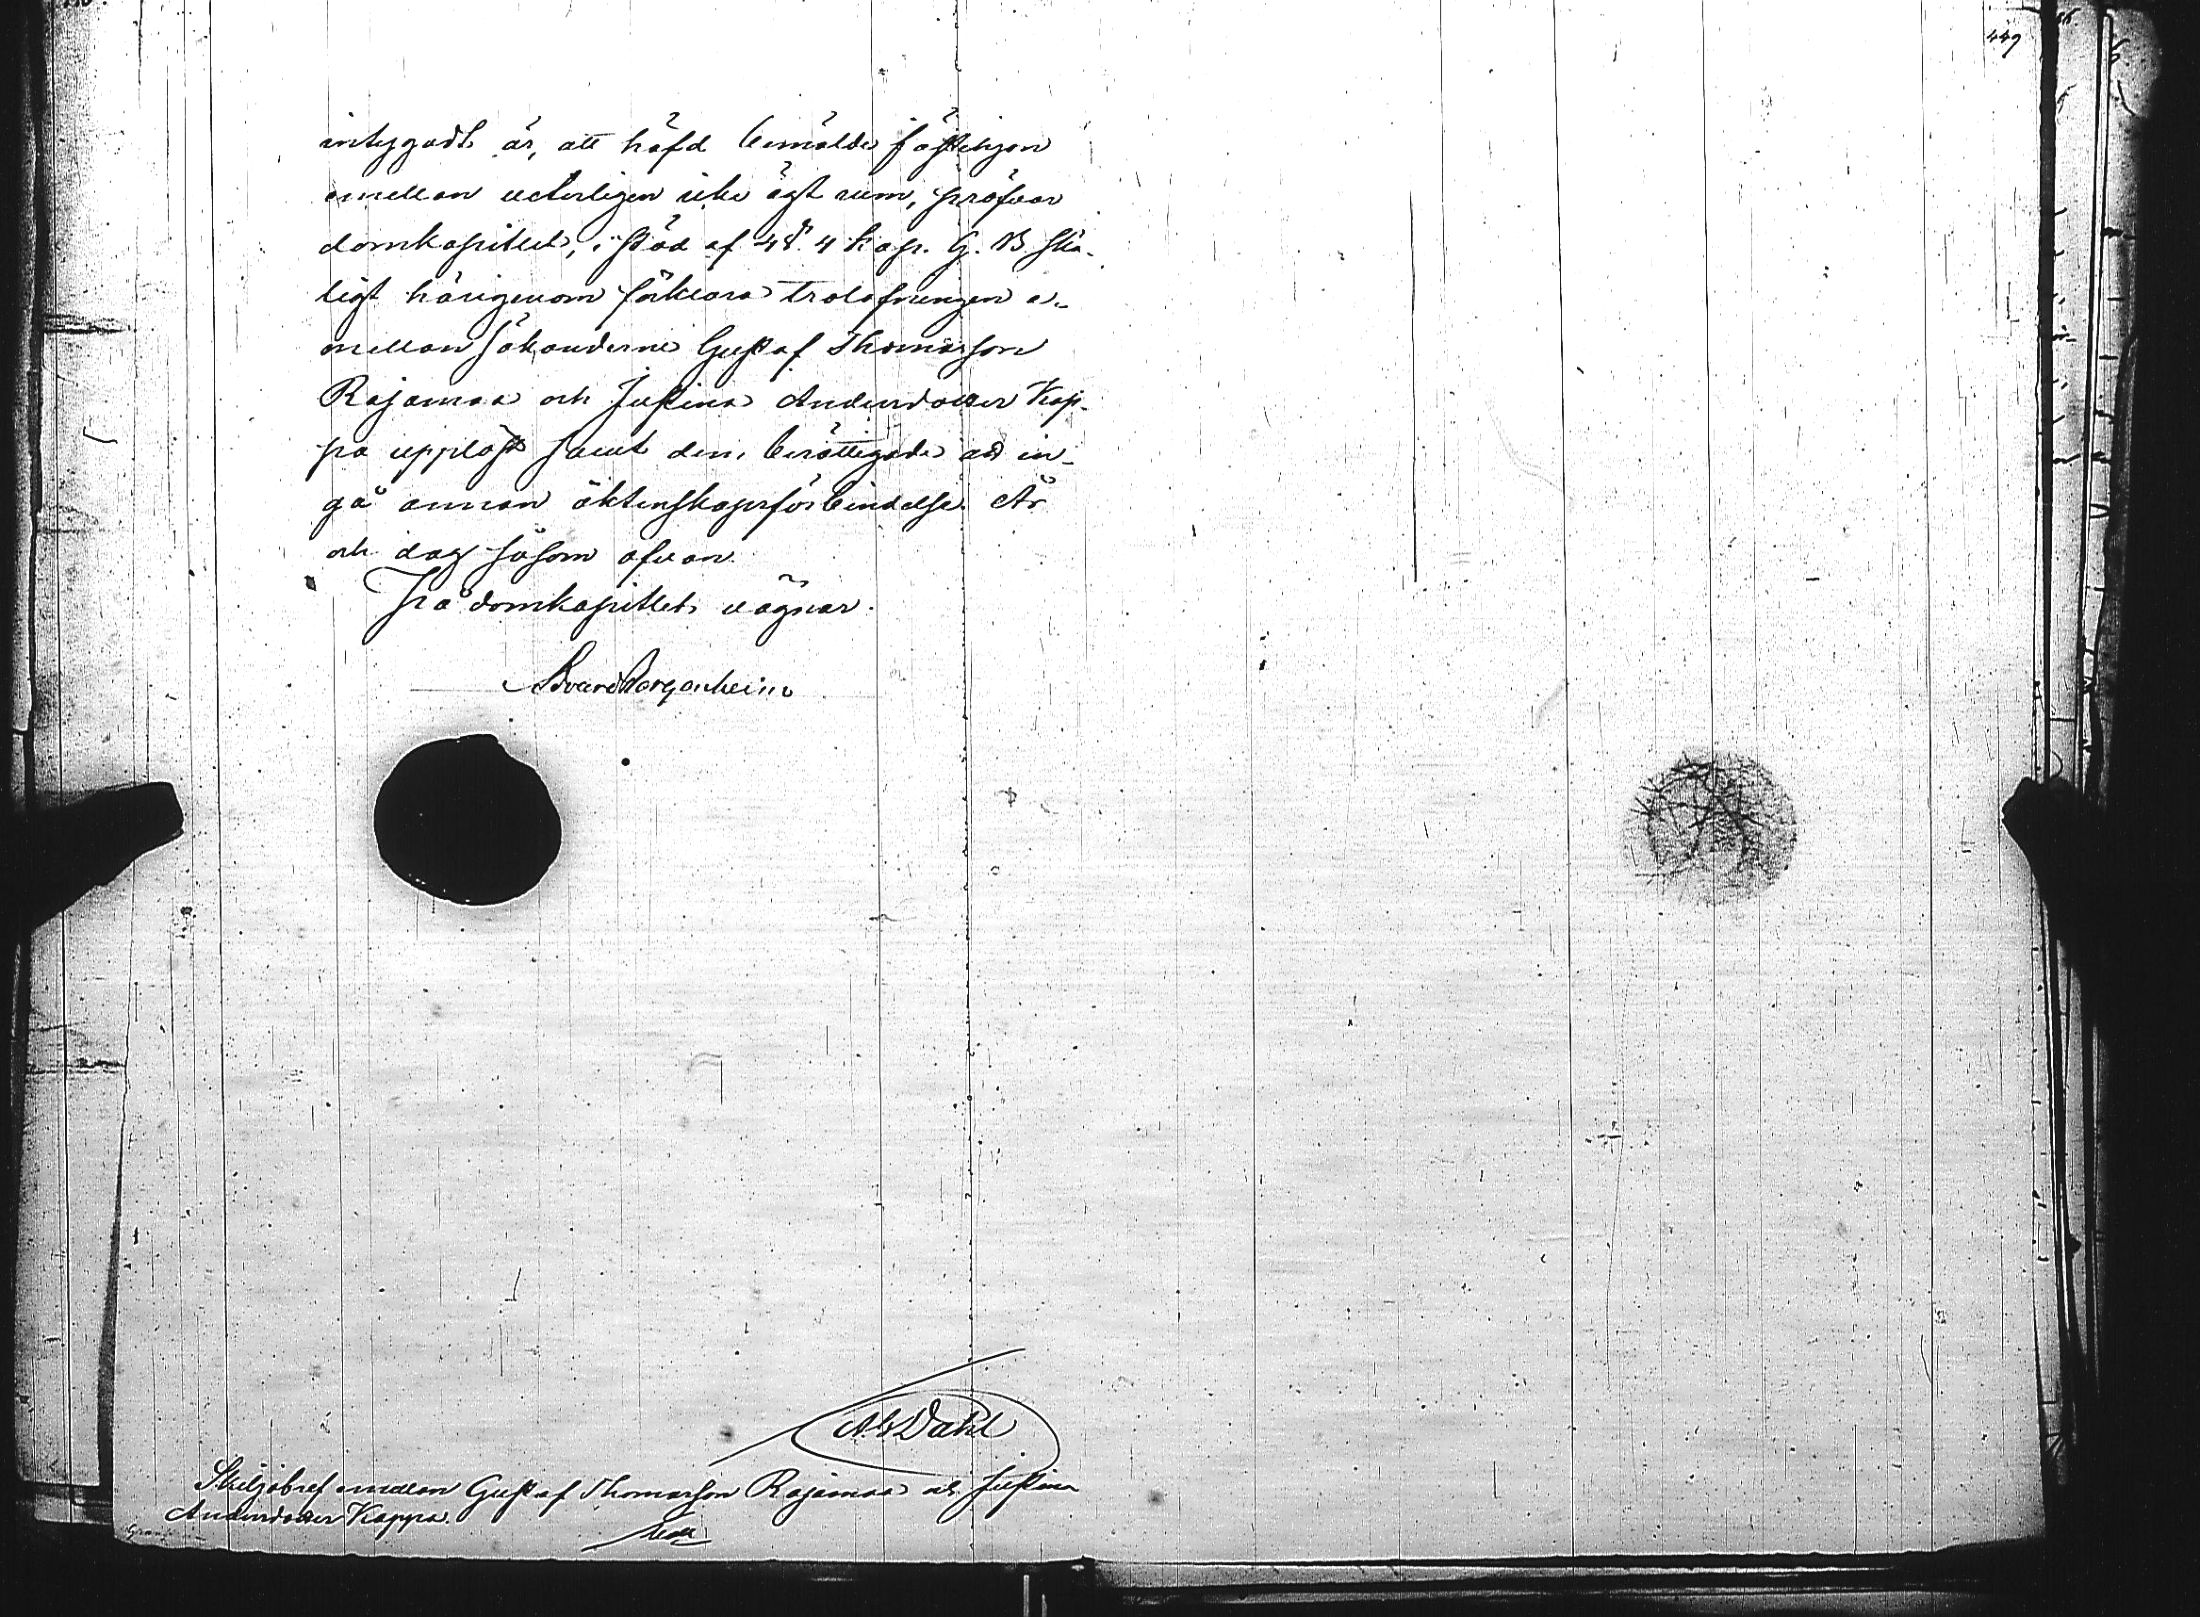 449
intygadt är, att häfd bemälde fästehjon
emellan veterligen icke ägt rum, pröfvar
domkapitlet, i stöd af 4 §. 4 kap. G. B skä-
ligt härigenom förklara trolofningen e-
mellan sökanderne Gustaf Thomasson
Rajamaa och Justina Andersdotter Kap-
pa upplöst samt dem berättigade att in-
gå annan äktenskapsförbindelse. År
och dag såsom ofvan.
På domkapitlets vägnar:
Edvard Bergenheim
Skiljobref emellan Gustaf Thomasson Rajamaa och Justina
Andersdotter Kappa.